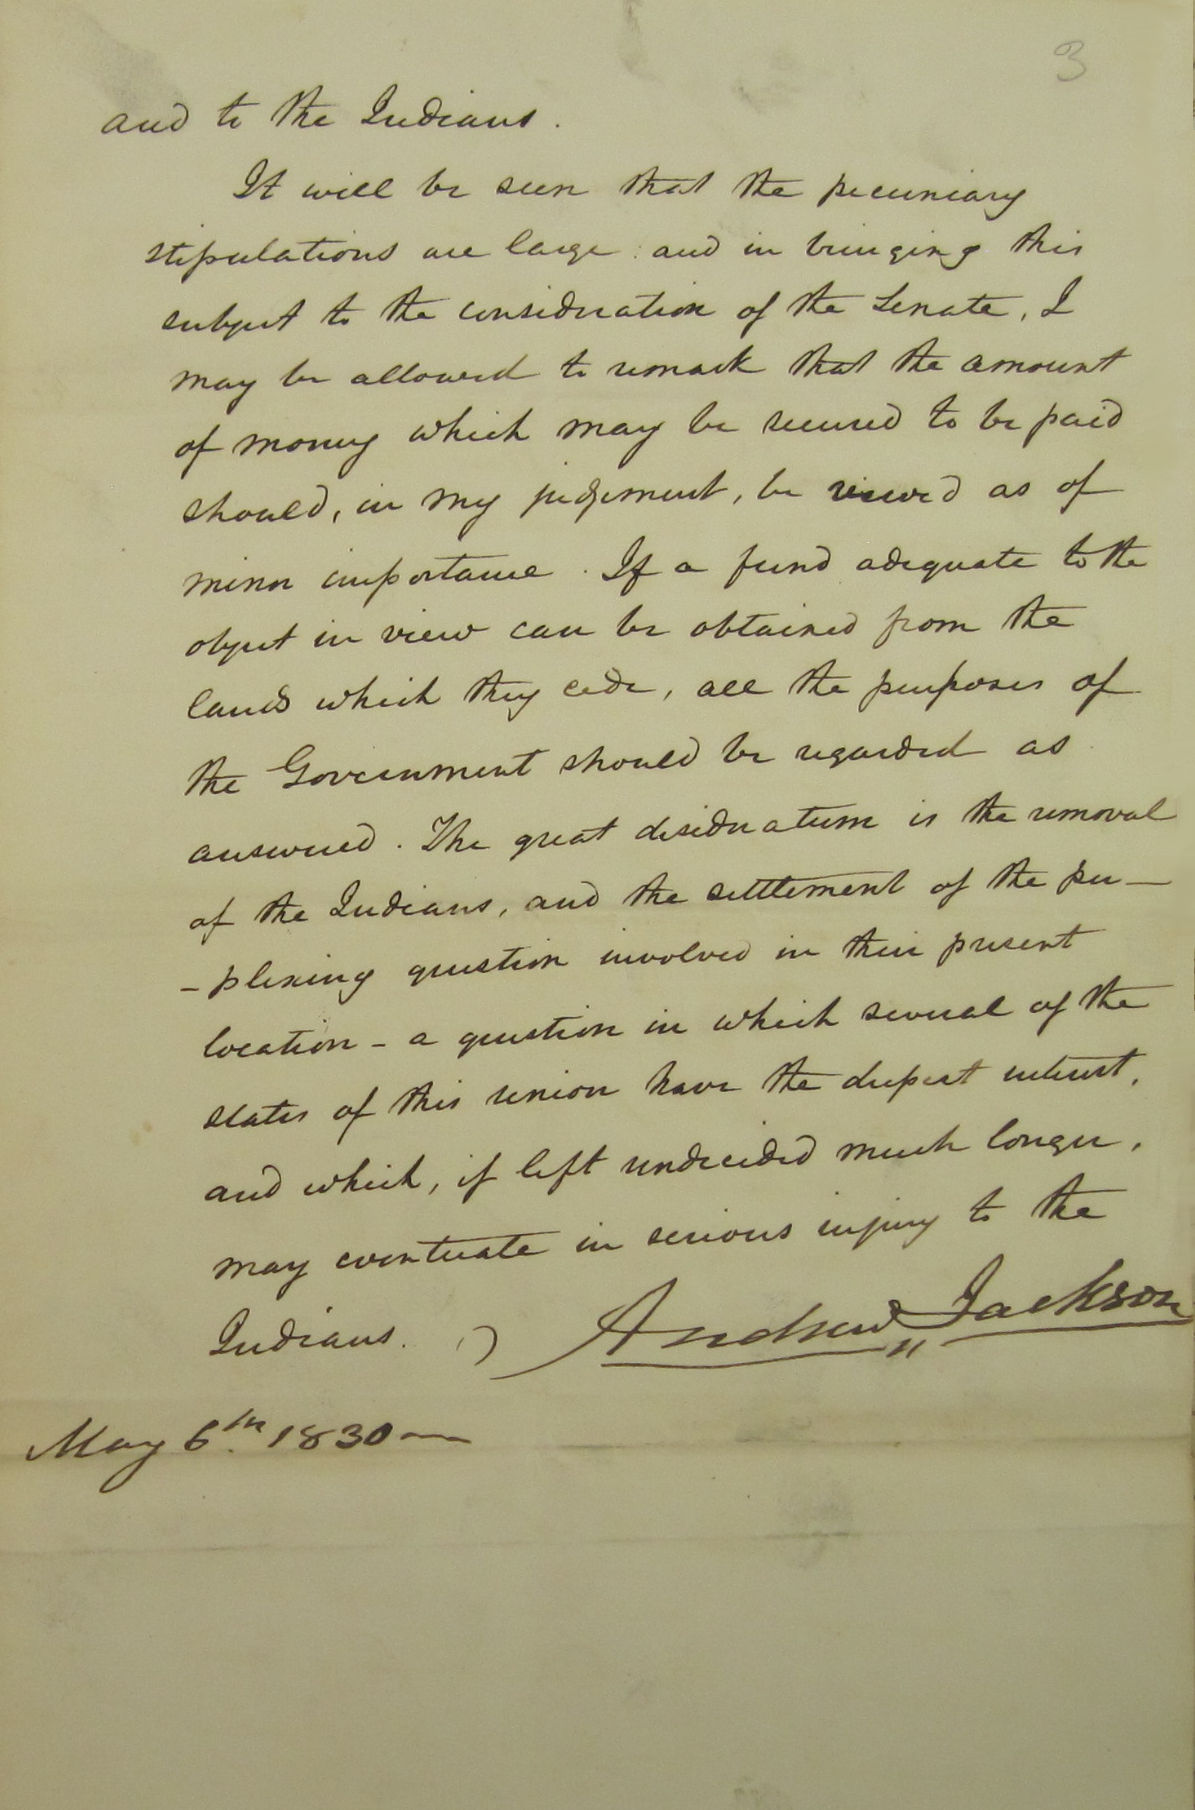 3
and to the Indians.
It will be seen that the pecuniary
stipulations are large: and in bringing this
subject to the consideration of the Senate, I
may be allowed to remark that the amount
of money which may be secured to be paid
should, in my judgement, be viewed as of
minor importance. If a fund adequate to the
object in view can be obtained from the
lands which they cede, all the purposes of
the Government should be regarded as
answered. The great desideratum is the removal
of the Indians, and the settlement of the per-
-plexing question involved in their present
location - a question in which several of the
states of this union have the deepest interest,
and which, if left undecided much longer,
may eventuate in serious injury to the
Indians.
Andrew Jackson
May 6th. 1830—